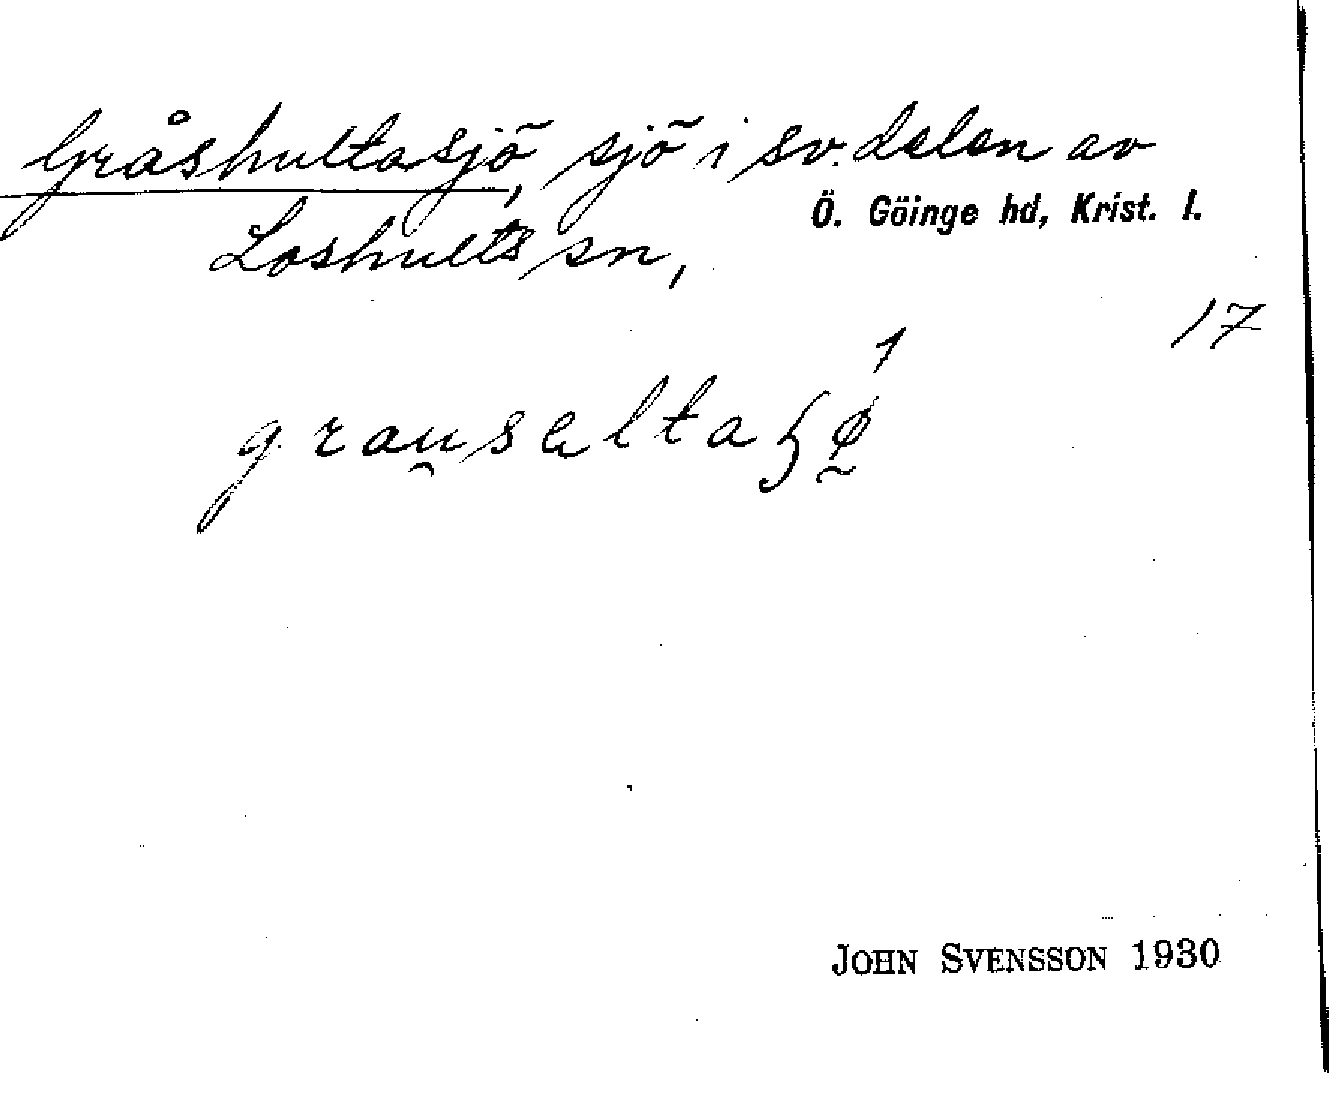 Gråshultasjö, sjö i sv. delen av
Ö. Göinge hd, Krist. l.
Loshults sn,
17
1
JOHN SVENSSON 1930